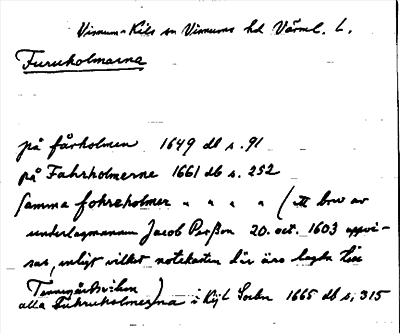 Visnums-Kils sn Visnums hd Värml. L.
Furuholmarna
på fårholmen 1649 db s. 91
på Fahrholmerne 1661 db s. 252
samma fohreholmer " " " " (ett brev av
underlagmannen Jacob Perßon 20. oct. 1603 uppvi-
sas, enligt vilket notekasten där äro lagda till
alla Fuhruholmerna i Kijl Sochn 1665 db s. 315